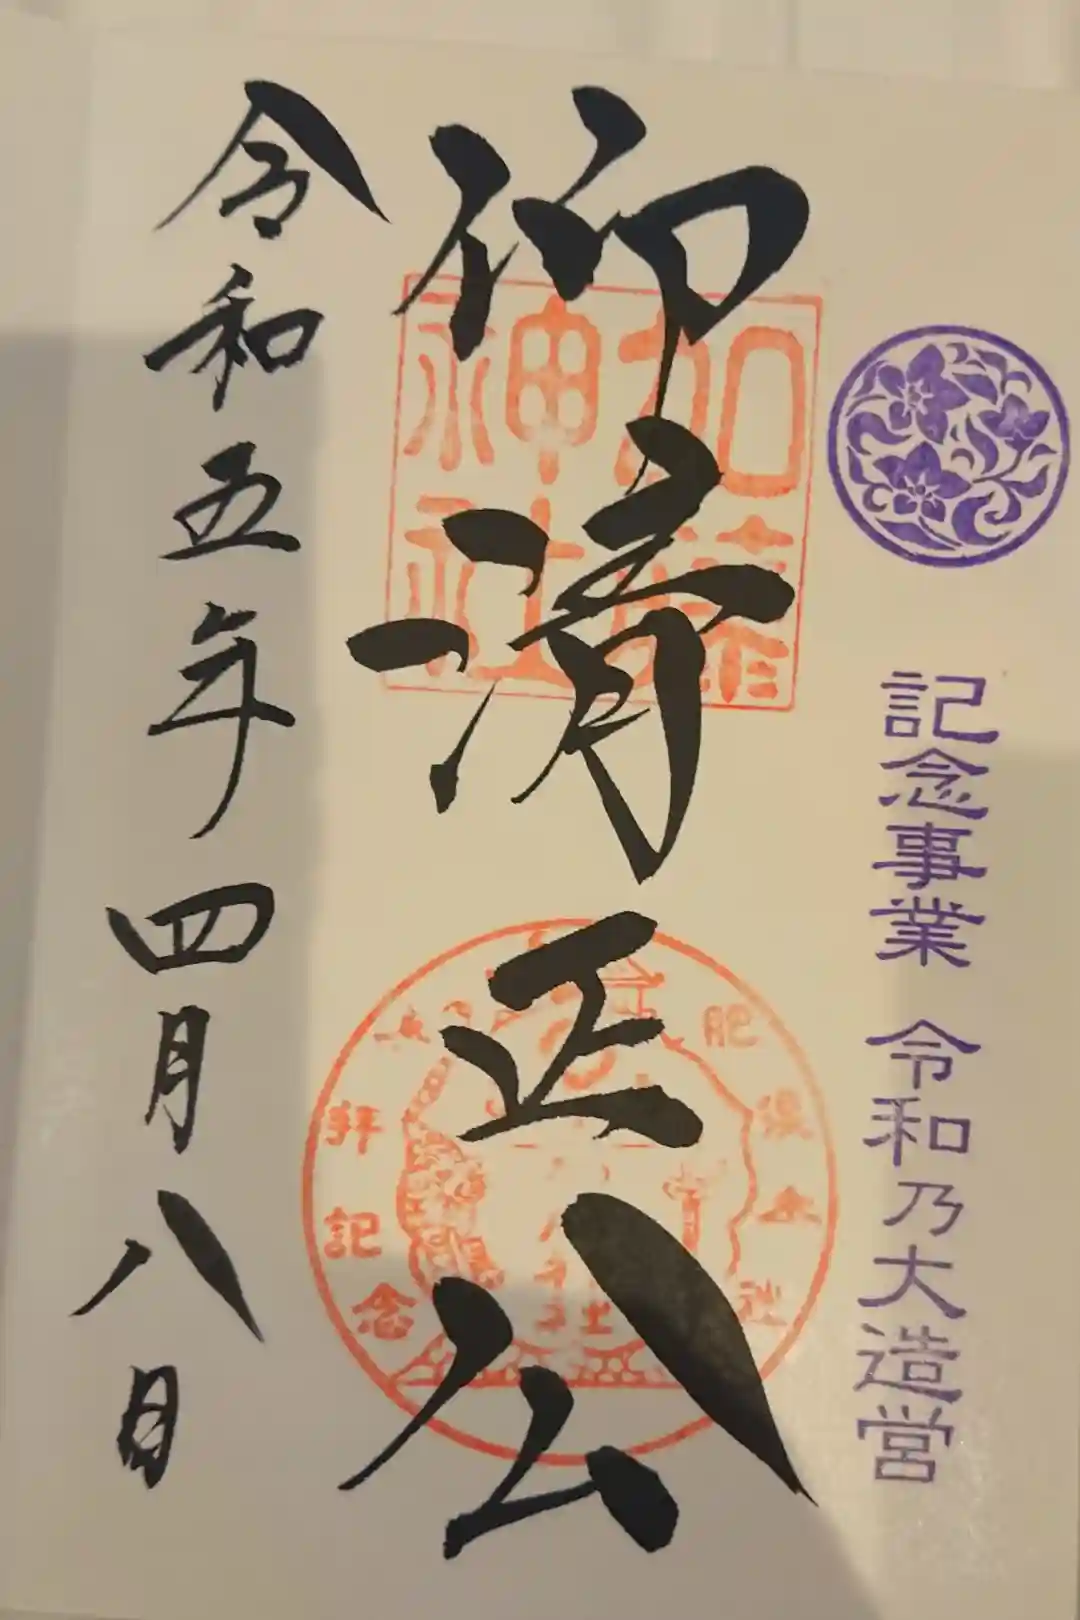 記念事業 令和乃大造営
仰清正公
加藤神社
肥後
参拝記念
令和五年四月八日